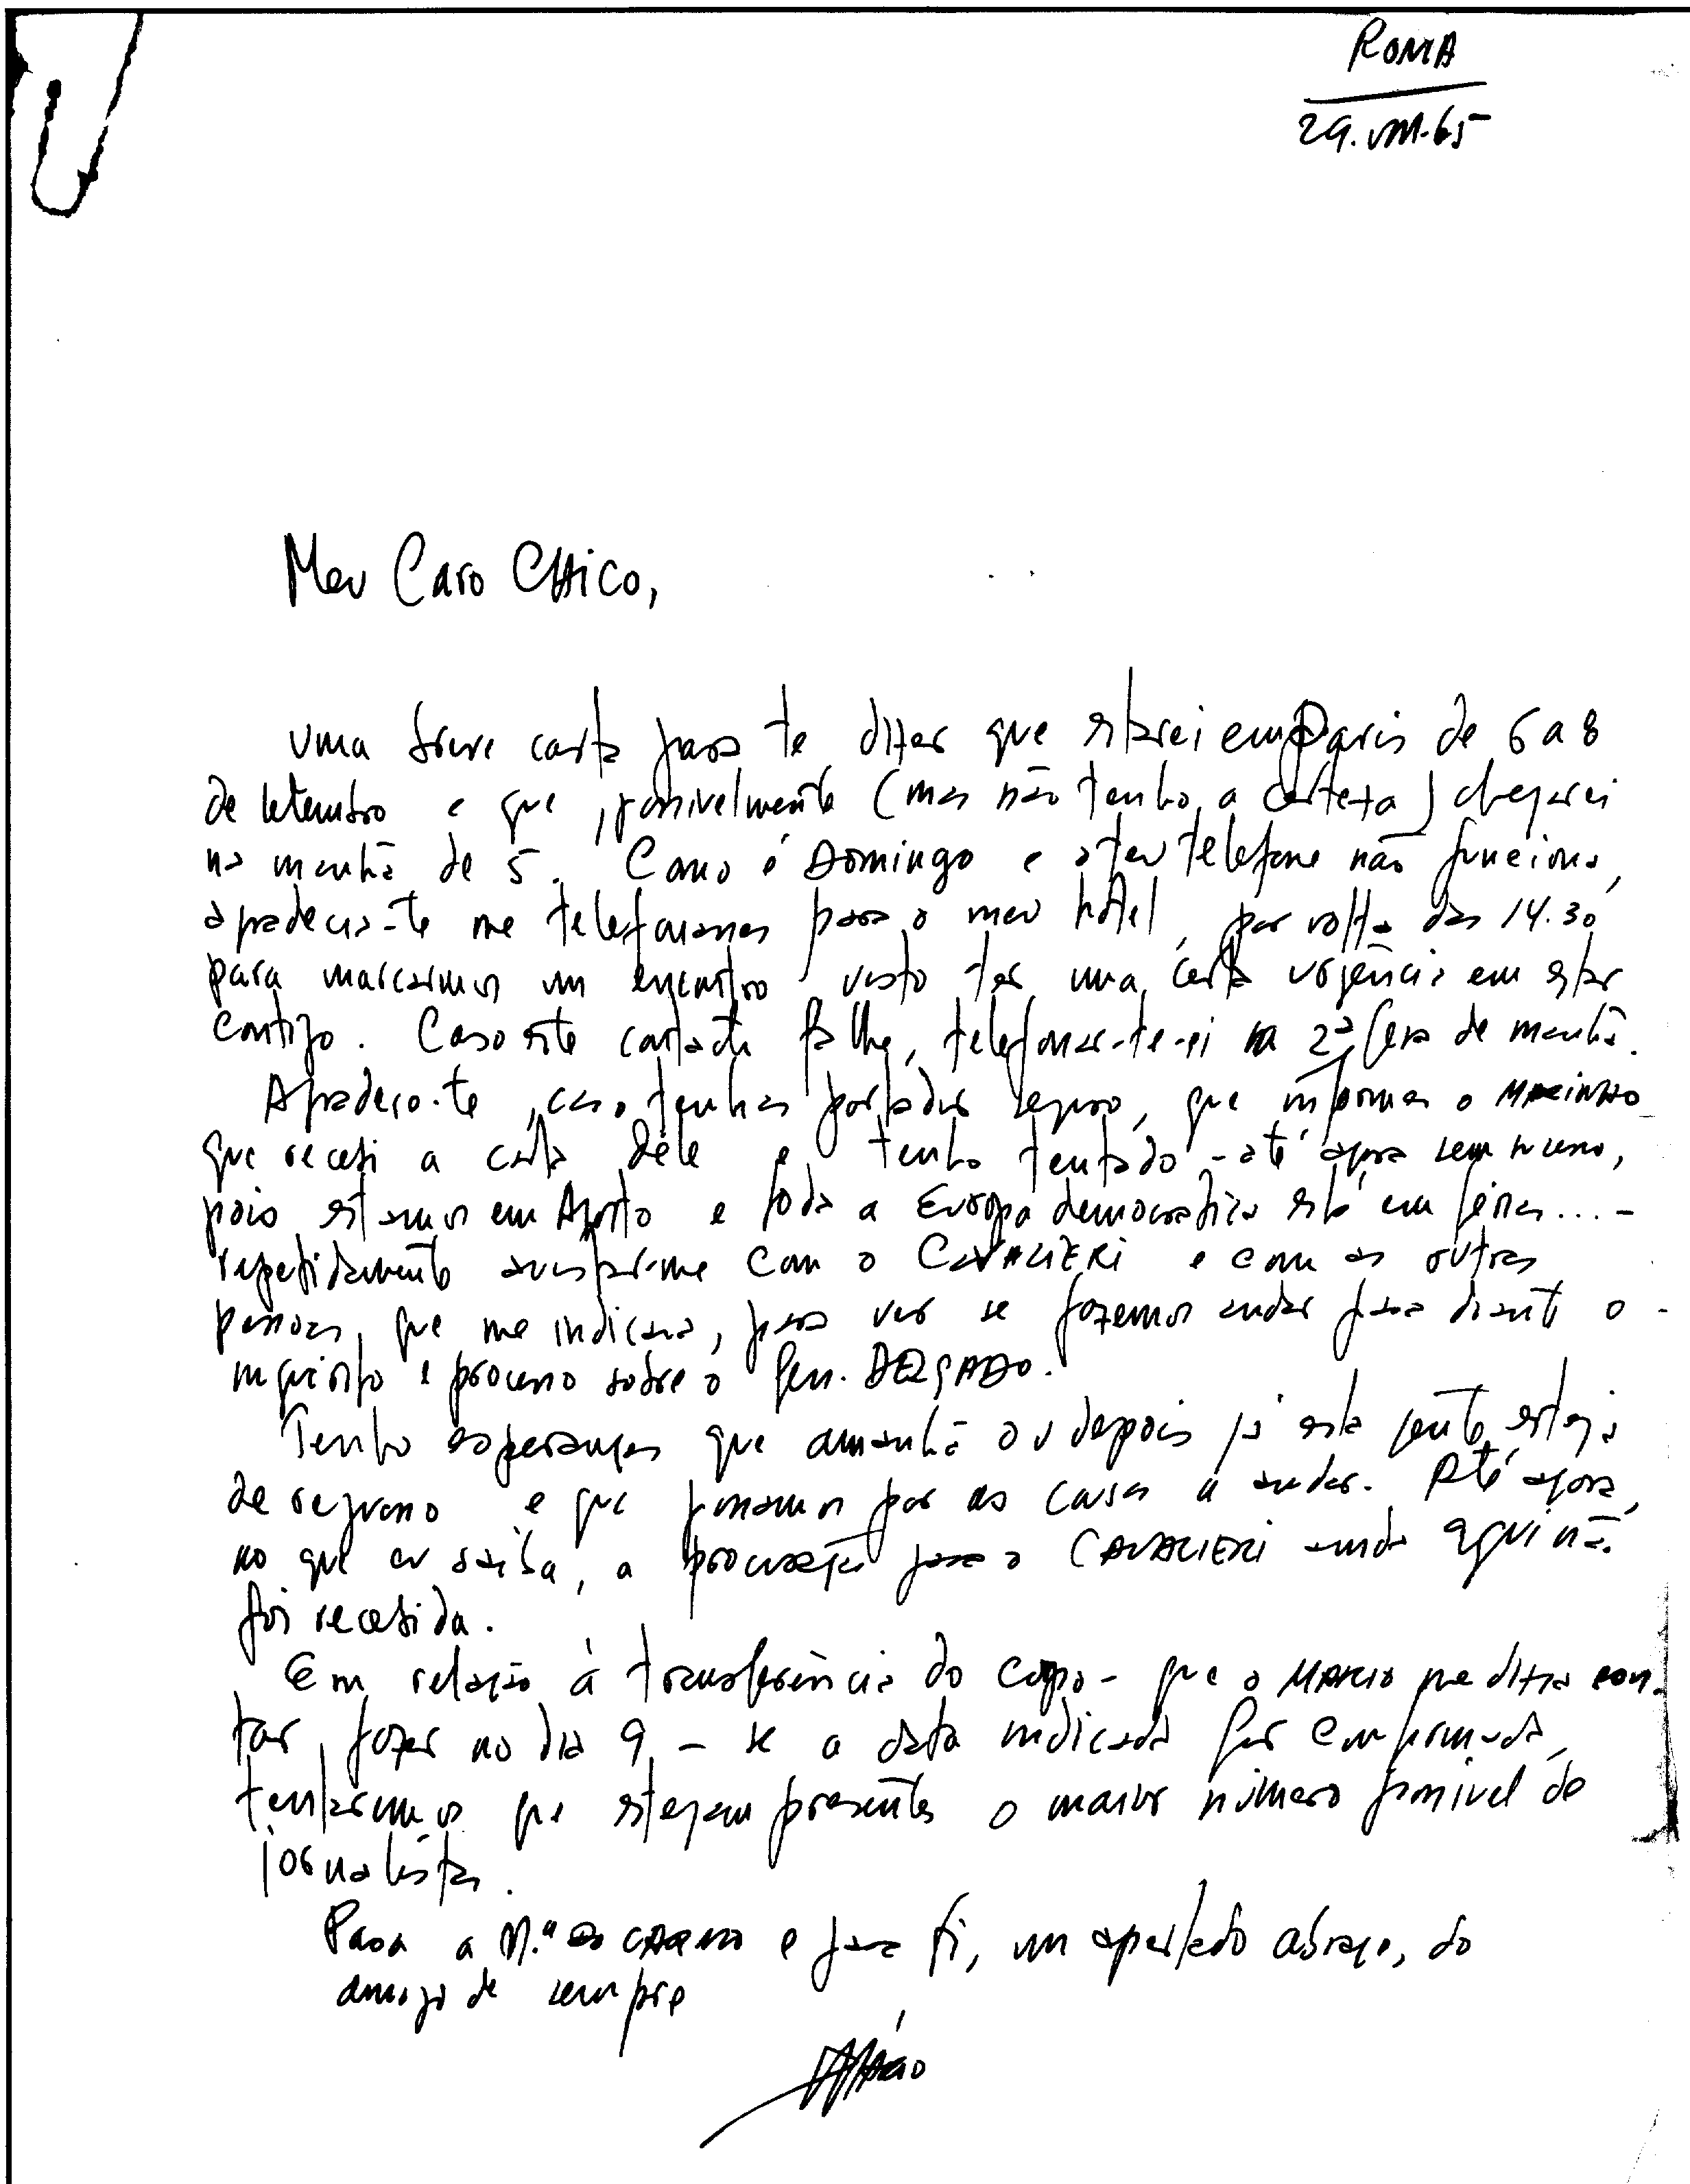 ROMA
29.VIII.65
Meu Caro CHICO,
uma breve carta para te dizer que estarei em Paris de 6 a 8
de setembro e que, possivelmente (mas não tenho a certeza) chegarei
na manhã de 5. Como é Domingo e o teu telefone não funciona,
agradecia-te me telefonasses para o meu hotel, por volta das 14.30
para marcarmos um encontro visto ter uma certa urgência em estar
contigo. Caso este contacto falhe, telefonar-te-ei na 2ª feira de manhã.
Agradeço-te, caso tenhas portador seguro, que informes o
que recebi a carta dêle e tenho tentado - até agora sem sucesso,
pois estamos em Agosto e toda a Europa democrática está em férias... -
repetidamente avistar-me com o CAVALIERI e com as outras
pessoas, que me indicara, para ver se fazemos andar para diante o
inquérito e processo sobre o Gen. DELGADO.
Tenho esperanças que amanhã ou depois já esta gente esteja
de regresso e que possamos pôr as coisas a andar. Até agora,
ao que eu saiba, a procuração para o CAVALIERI ainda aqui não
foi recebida.
Em relação à transferência do corpo - que o MÁRIO me dizia con-
tar fazer no dia 9 - se a data indicada fôr confirmada,
tentaremos que estejam presentes o maior número possível de
jornalistas.
Para a M.ª do CARMO e para ti, um apertado abraço, do
amigo de sempre